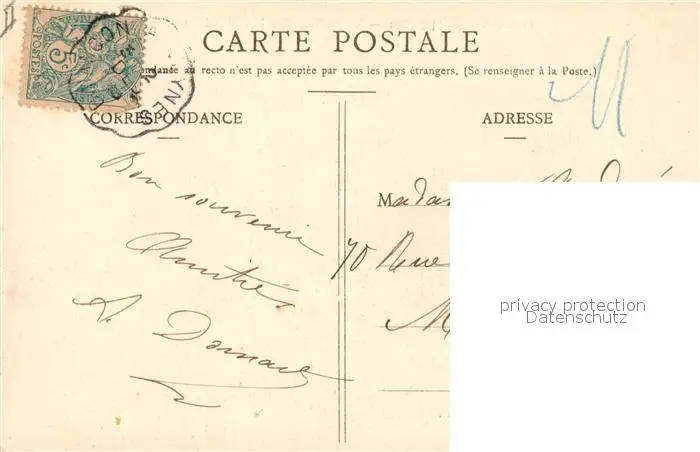 CARTE POSTALE
au recto n'est pas acceptée par tous les pays étrangers. (Se renseigner à la Poste.)
CORRESPONDANCE
ADRESSE
POSTES
5
Bon souvenir
Amitiés
A.
70 Rue
privacy protection
Datenschutz